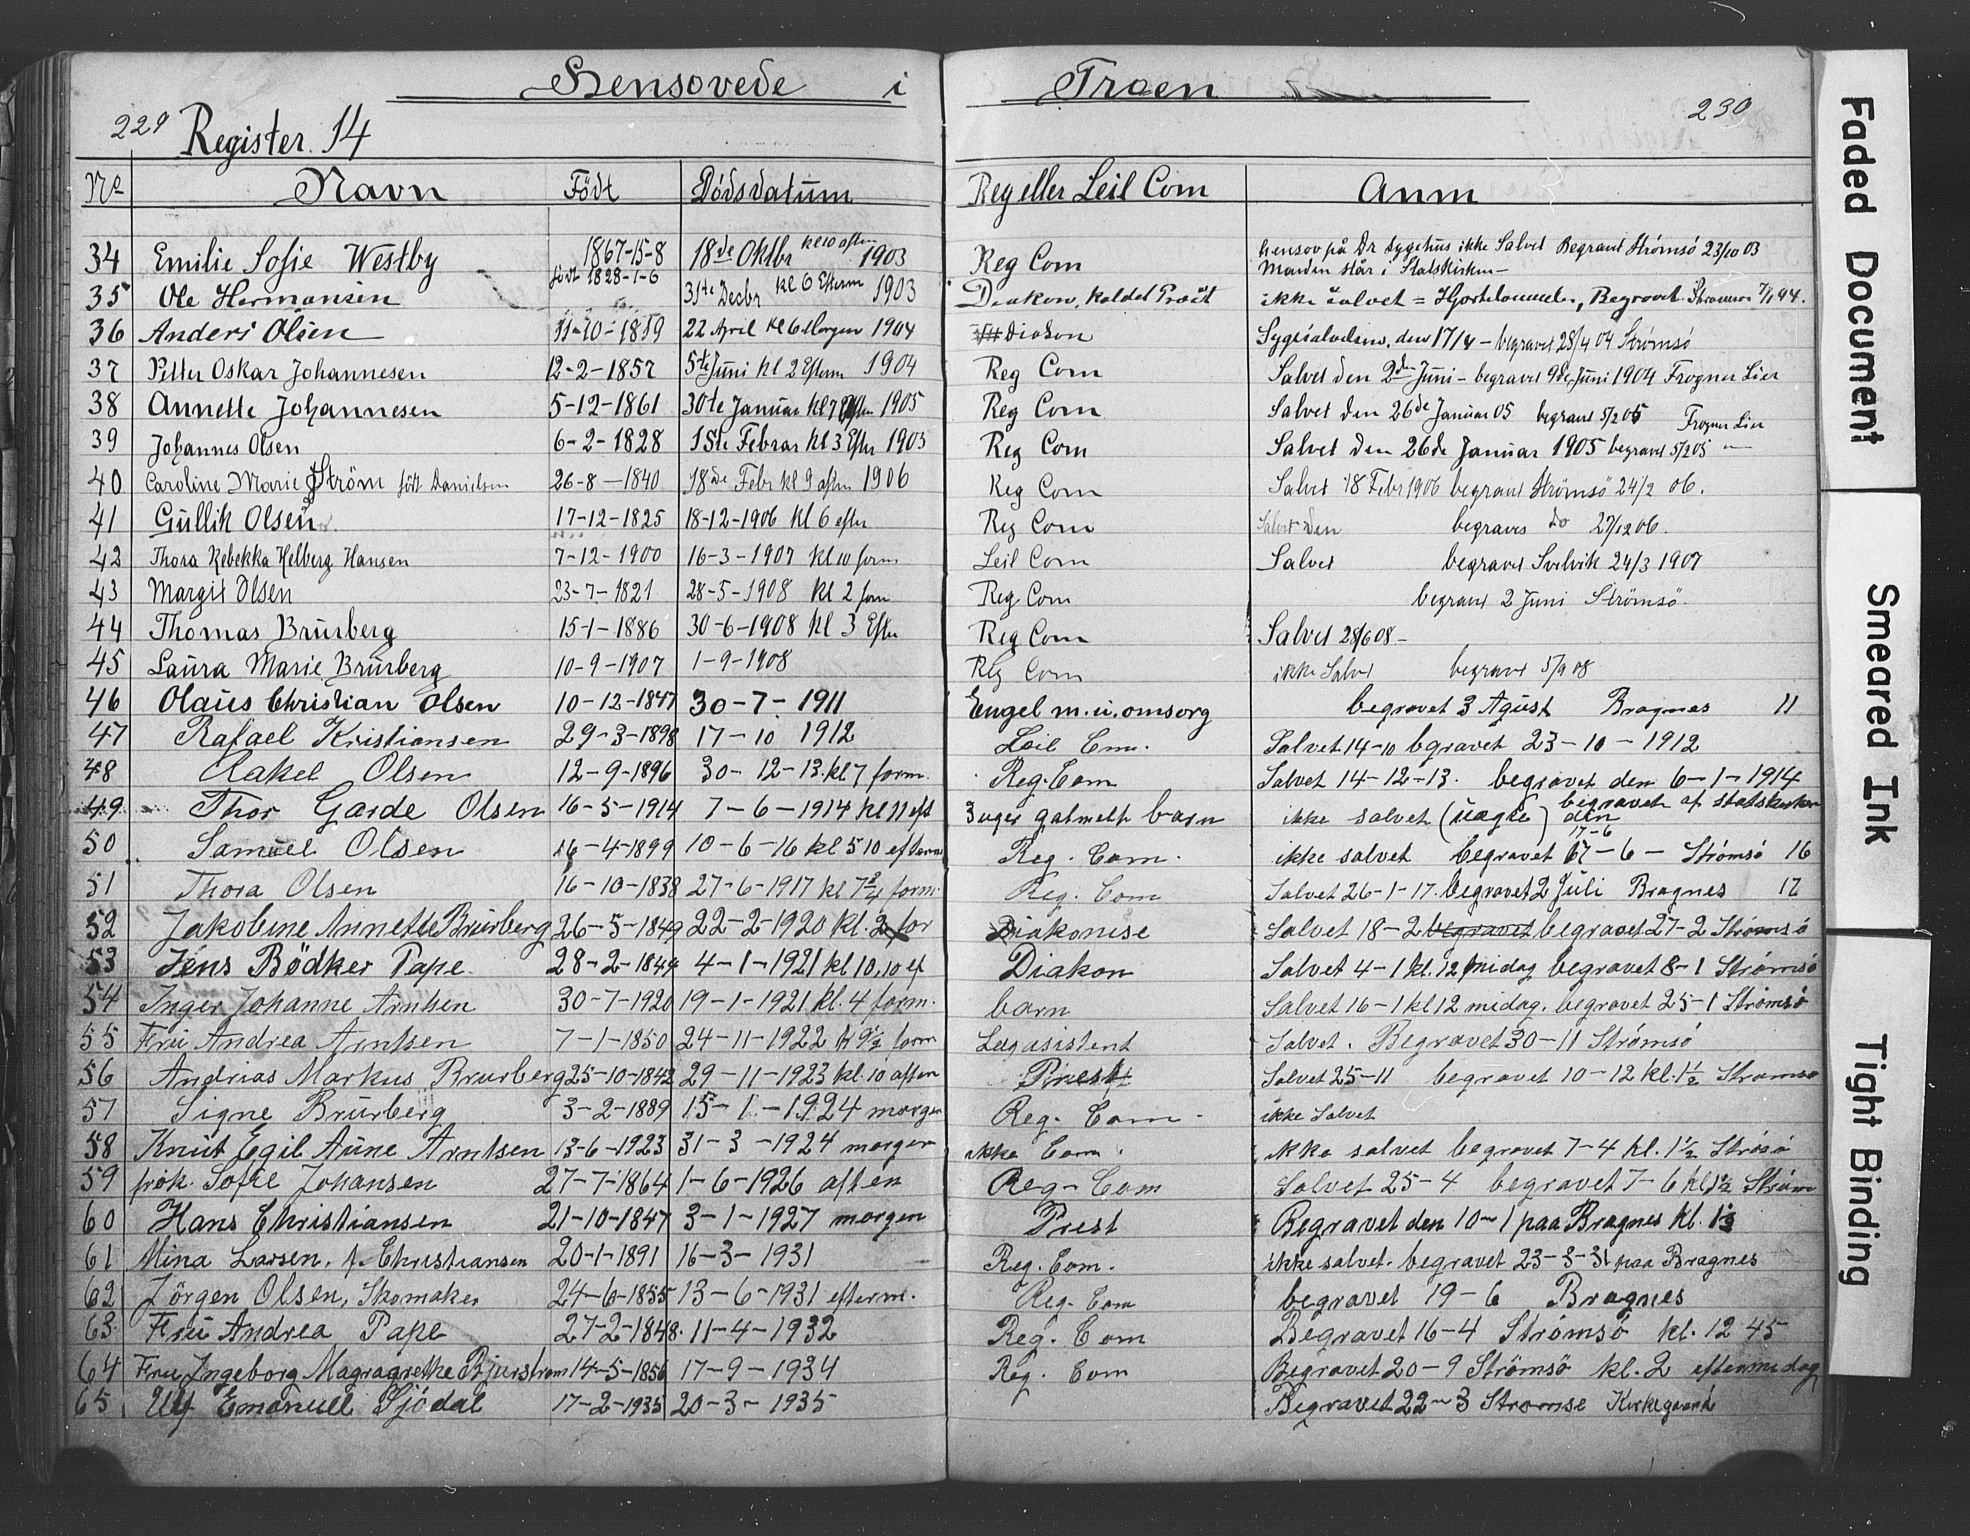 Hensovede i Troen
229 Register. 14 230
No Navn Födt Dödsdatum Reg eller Leil Com Anm
34 Emilie Sofie Westby 1867-15-8 18de Oktbr kl 10 aften 1903 Reg Com hensov på Dr sygehus ikke Salvet Begravet Strømsö 23/10 03
Manden står i Statskirken -
35 Ole Hermansen födt 1828-1-6 31te Decbr kl 6 Efterm 1903 Diakon, kaldet Præst ikke salvet = Begravet Strömsö
36 Anders Olsen 11-10-1859 22 April kl 6 Morgen 1904 Diakon den 17/4 - begravet 28/4 04 Strømsö
37 Petter Oskar Johannesen 12-2-1857 5te Juni kl 2 Efterm 1904 Reg Com Salvet den 2den Juni - begravet 9de Juni 1904 Frogner Lier
38 Annette Johannesen 5-12-1861 30te Januar kl 7 1905 Reg Com Salvet den 26de Januar 05 begravet 5/2 05 Frogner Lier
39 Johannes Olsen 6-2-1828 1Ste Febrar kl 3 Efter 1905 Reg Com Salvet den 26de Januar 1905 begravet 5/2 05 "
40 Caroline Marie Ström født Danielsen 26-8-1840 18de Febr kl 9 aften 1906 Reg Com Salvet 18 Febr 1906 begravet Strømsö 24/2 06.
41 Gullik Olsen 17-12-1825 18-12-1906 kl 6 efter Reg Com Salvet den begraves do 27/12 06.
42 Thora Rebekka Helberg Hansen 7-12-1900 16-3-1907 kl 10 form Leil Com Salvet begravet Svelvik 24/3 1907
43 Margit Olsen 23-7-1821 28-5-1908 kl 2 form Reg Com begravet 2 Juni Strömsö.
44 Thomas Brurberg 15-1-1886 30-6-1908 kl 3 Efter Reg Com Salvet 28/6 08 -
45 Laura Marie Brurberg 10-9-1907 1-9-1908 Reg Com ikke Salvet begravet 5/9 08
46 Olaus Christian Olsen 10-12-1847 30-7-1911 Engel m.u. omsorg begravet 3 Agust Bragnes 11
47 Rafael Kristiansen 29-3-1898 17-10 1912 Leil Com. Salvet 14-10 bgravet 23-10-1912
48 Rakel Olsen 12-9-1896 30-12-13. kl 7 form. Reg. Com Salvet 14-12-13. begravet den 6-1-1914
49. Thor Garde Olsen 16-5-1914 7-6-1914 kl 11 eft 3 uger gammelt barn ikke salvet (uægte) begravet af statskirken
den
17-6
50 Samuel Olsen 16-4-1899 10-6-16 kl 5 10 efterm Reg. Com. ikke salvet begravet 17-6- Strömsö 16
51 Thora Olsen 16-10-1838 27-6-1917 kl 7 3/4 form. Reg. Com Salvet 26-1-17. begravet 2 Juli Bragnes 17
52 Jakobine Annette Brurberg 26-5-1849 22-2-1920 kl. 2 for Diakonise Salvet 18-2 begravet begravet 27-2 Strömsö
53 Jens Bödker Pape 28-2-1849 4-1-1921 kl 10,10 ef Diakon Salvet 4-1 kl. 12 midag begravet 8-1 Strömsö
54 Inger Johanne Arntsen 30-7-1920 19-1-1921 kl. 4 form. barn Salvet 16-1 kl 12 midag. begravet 25-1 Strömsö
55 Frü Andrea Arntsen 7-1-1850 24-11-1922 kl 9 1/2 form Lægasistent Salvet. Begravet 30-11 Strömsö
56 Andrias Markus Brurberg 25-10-1842 29-11-1923 kl. 10 aften Prest Salvet 25-11 begravet 10-12 kl. 1 1/2 Strømsø
57 Signe Brurberg 3-2-1889 15-1-1924 morgen Reg. Com - ikke Salvet
58 Knut Egil Aune Arntsen 13-6-1923 31-3-1924 morgen ikke Com. ikke salvet begravet 7-4 kl. 1 1/2 Strösö
59 frök. Sofie Johansen 27-7-1864 1-6-1926 aften Reg-Com Salvet 25-4 begravet 7-6 kl 1 1/2 Ström
60 Hans Christiansen 21-10-1847 3-1-1927 morgen Prest Begravet den 10-1 paa Bragnes kl. 1 1/2
61 Mina Larsen, f. Christiansen 20-1-1891 16-3-1931 Reg. Com. ikke salvet. begravet 23-3-31 paa Bragnes
62 Jörgen Olsen, Skomaker 24-6-1855 13-6-1931 efterm. Reg. Com begravet 19-6 Bragnes
63 Frü Andrea Pape 27-2-1848. 11-4-1932 Reg. Com Begravet 16-4 Strömsö kl. 12 45
64 Fru Ingeborg Magragrethe Bjurstrom 14-5-1856 17-9-1934 Reg. Com Begravet 20-9 Strömsö kl. 2 eftermidag
65 Ulf Emanuell Sjödal 17-2-1935 20-3-1935 Begravet 22-3 Stromse Kirkegaard
Faded Document
Smeared Ink
Tight Binding